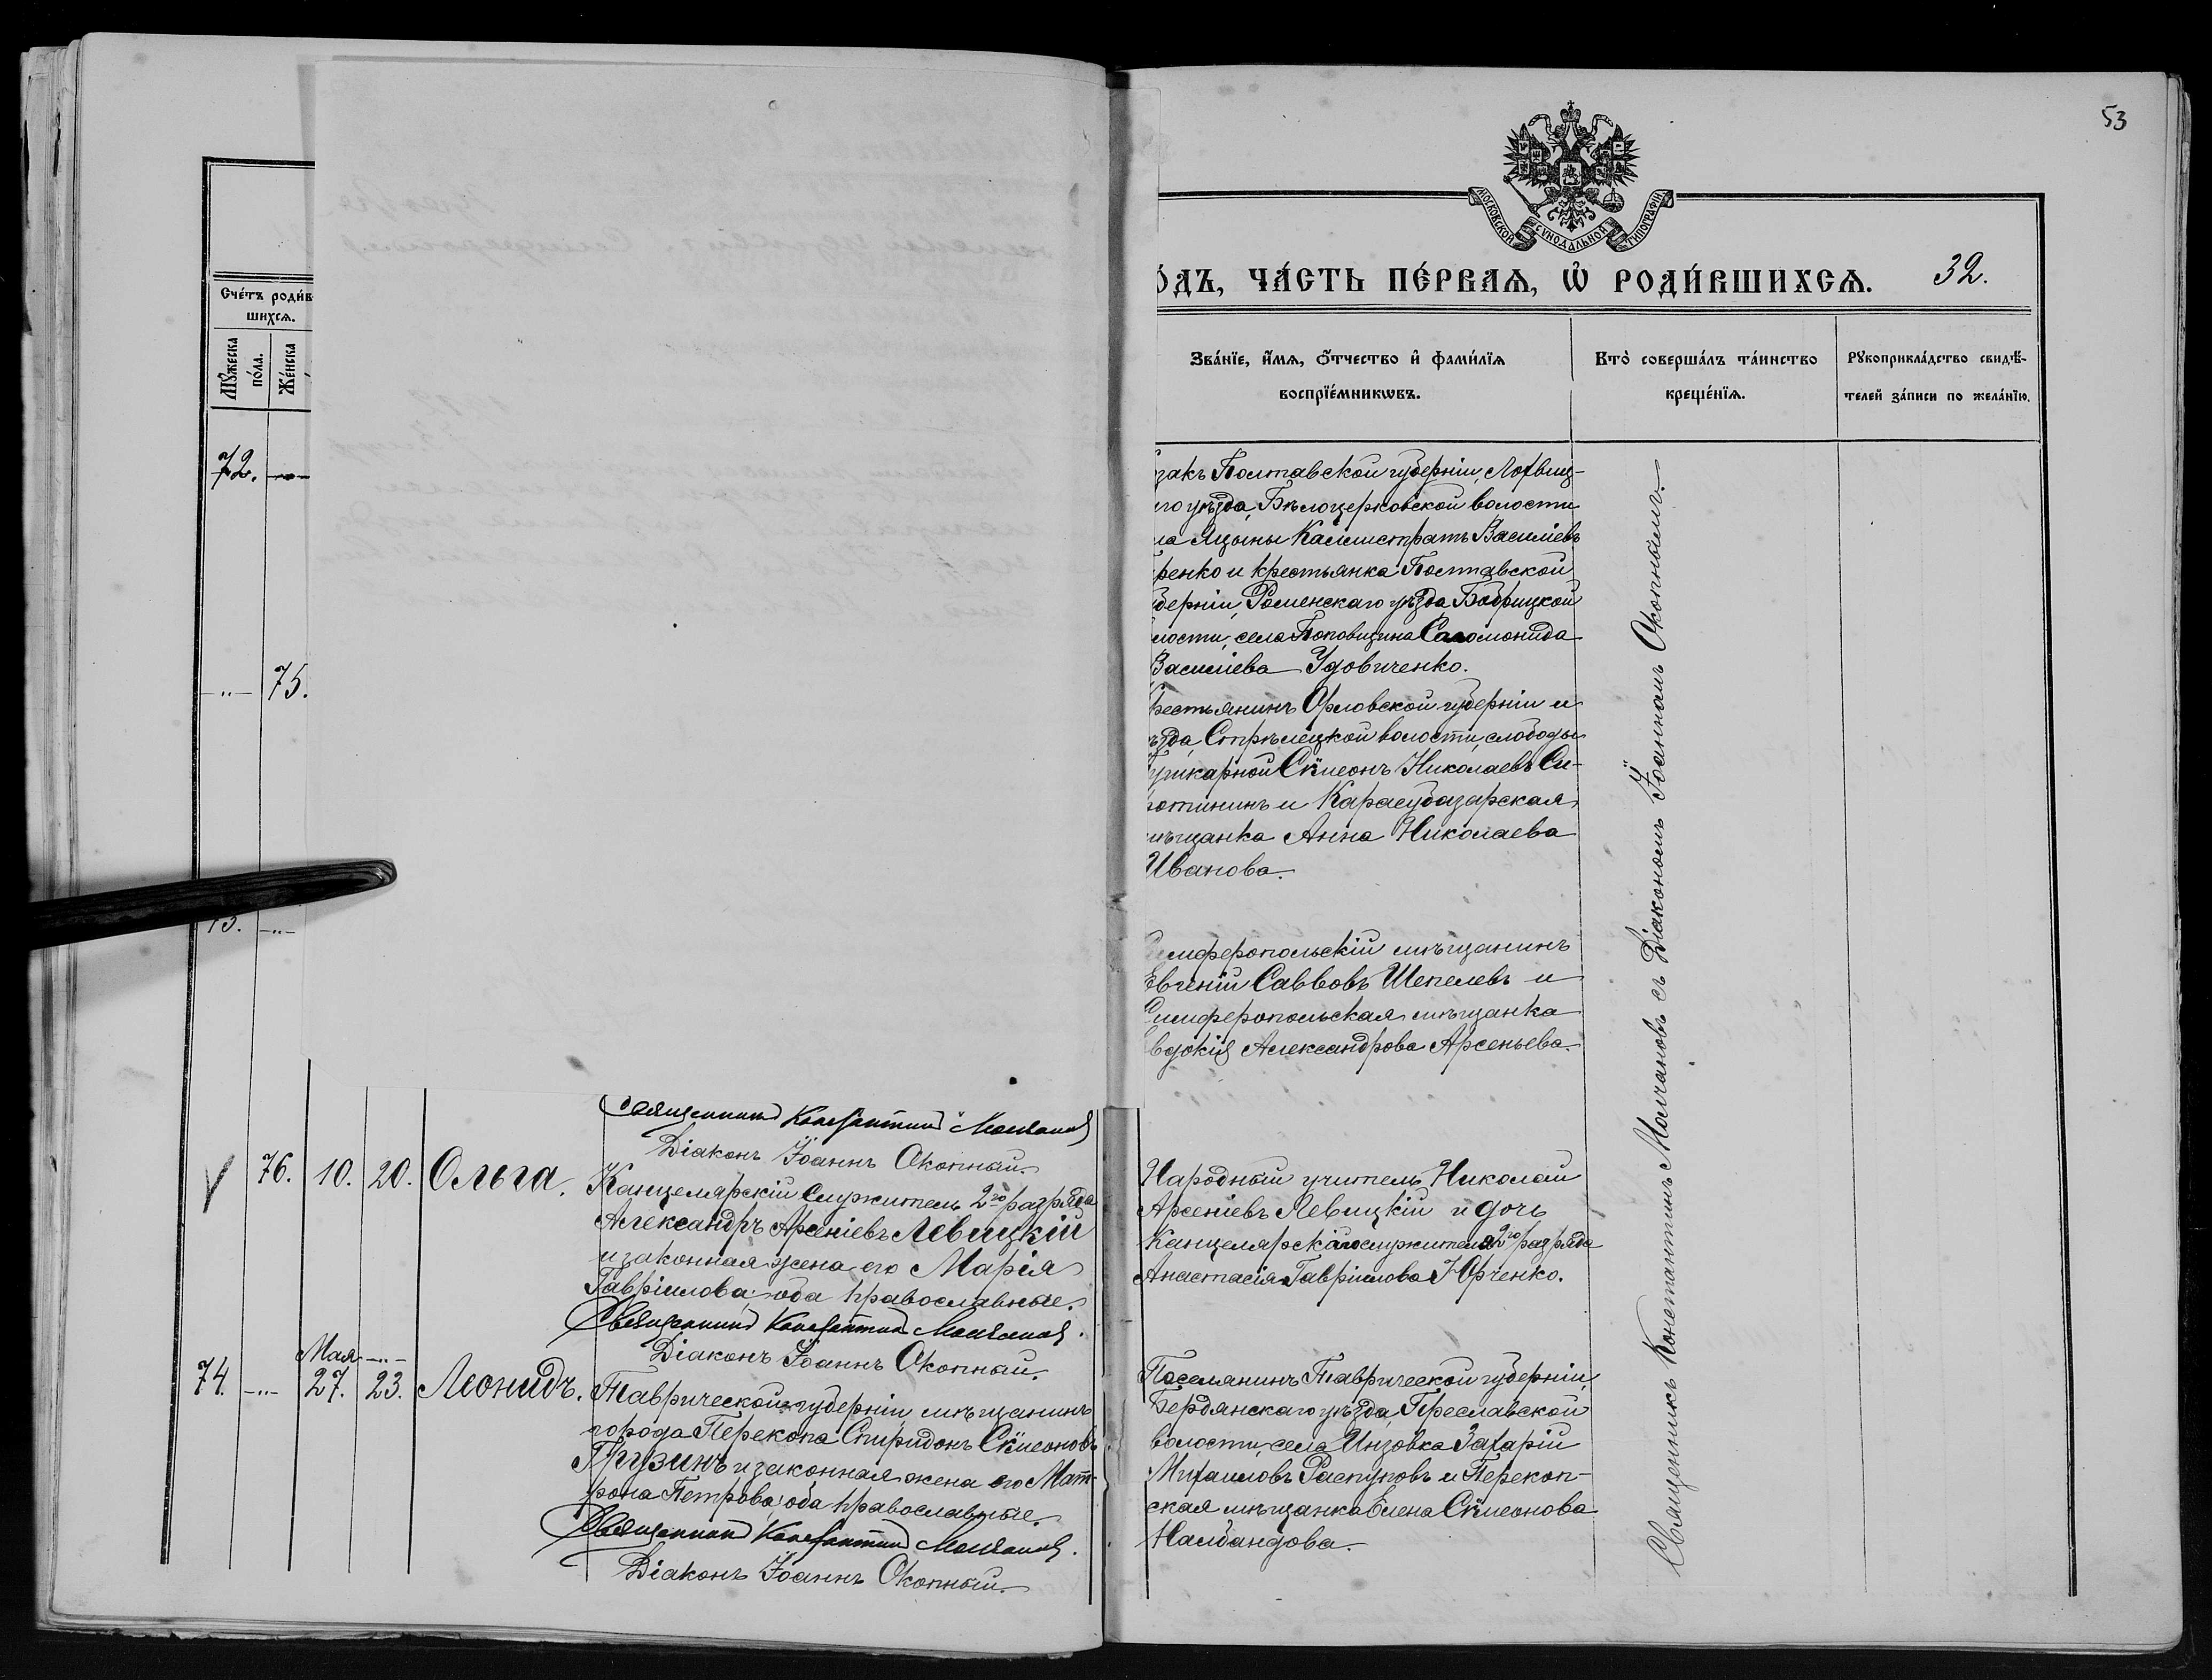 53
МОСКОВСКОЙ СѴНОДАЛЬНОЙ ТИПОГРАФІИ
О́ДЪ, ЧА́СТЬ ПЕ́РВАѦ, Ѡ҆ РОДИ́ВШИХСѦ. 32.
Сче́тъ роди́в-
шихсѧ.
Мꙋ́жеска
по́ла.
Же́нска
Зва́нїе, и҆́мѧ, ѻ҆́тчество и҆ фами́лїѧ
воспрїе́мникѡвъ.
Кто̀ соверша́лъ та́инство
креще́нїѧ.
Рꙋкоприкла́дство свидѣ́-
телей за́писи по жела́нїю.
72. —„—
—„— 75.
73. —„—
закъ Полтавской губерніи, Лохвиц-
го уѣзда, Бѣлоцерковской волости
ла Яцыны Каллистратъ Василіевъ
ренко и крестьянка Полтавской
берніи, Роменскаго уѣзда Бобрицкой
лости, села Поповщина Саломонида
Василіева Удовиченко.
рестьянинъ Орловской губерніи и
ѣзда, Стрѣлецкой волости, слободы
ушкарной Сѵмеонъ Николаевъ Си-
ротининъ и Карасубазарская
мѣщанка Анна Николаева
Иванова.
Симферопольскій мѣщанинъ
Евгеній Саввовъ Шепелевъ и
Симферопольская мѣщанка
Евдокія Александрова Арсеньева.
Священникъ Константинъ Молчановъ
Діаконъ Іоаннъ Окопный.
76. 10. 20. Ольга.
Канцелярскій служитель 2го разряда
Александръ Арсеніевъ Левицкій
и законная жена его Марія
Гавріилова, оба православные.
Священникъ Константинъ Молчановъ.
Діаконъ Іоаннъ Окопный.
Народный учитель Николай
Арсеніевъ Левицкій и дочь
Канцелярскаго служителя 2го разряда
Анастасія Гавріилова Юрченко.
Мая —„—
74. —„— 27. 23. Леонидъ.
Таврической губерніи, мѣщанинъ
города Перекопа Спиридонъ Сѵмеоновъ
Грузинъ и законная жена его Мат-
рона Петрова, оба православные.
Священникъ Константинъ Молчановъ.
Діаконъ Іоаннъ Окопный.
Поселянинъ Таврической губерніи,
Бердянскаго уѣзда, Преславской
волости, села Инзовка Захарій
Михаиловъ Распуповъ и Перекоп-
ская мѣщанка Елена Сѵмеонова
Налбандова.
Священникъ Константинъ Молчановъ съ Діакономъ Іоанномъ Окопнымъ.